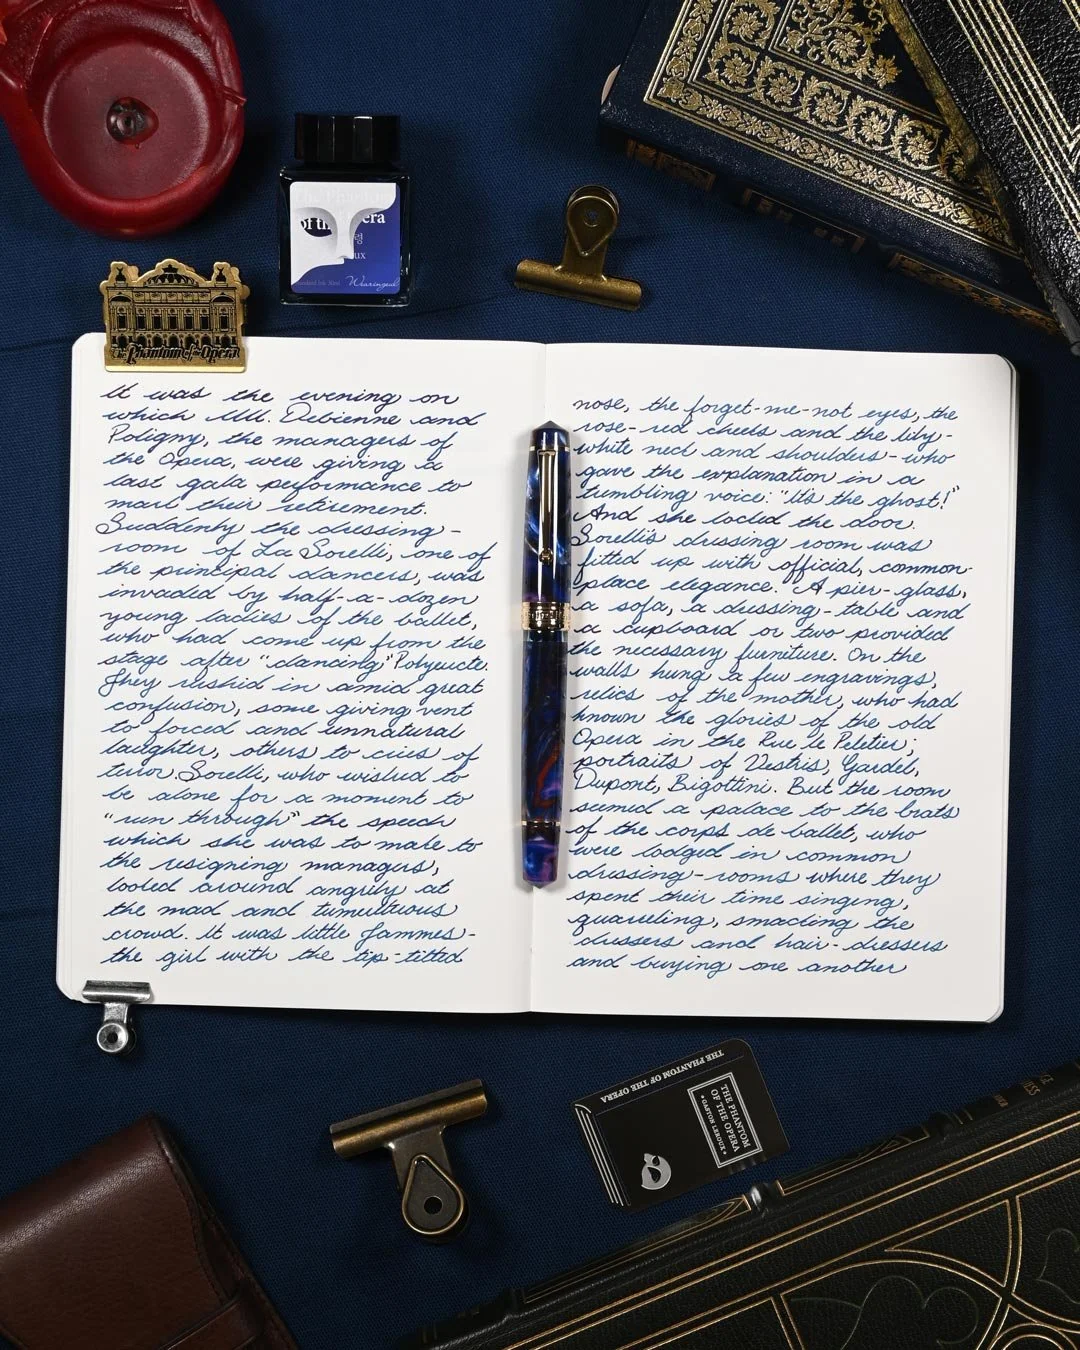 The Phantom
of the Opera
령
ux
Standard Ink 30ml
Wearingeul
The Phantom of the Opera
It was the evening on
which MM. Debienne and
Poligny, the managers of
the Opera, were giving a
last gala peformance to
mark their retirement.
Suddenly the dressing-
room of La Sorelli, one of
the principal dancers, was
invaded by half-a-dozen
young ladies of the ballet,
who had come up from the
stage after "dancing" Polyeucte.
They rushed in amid great
confusion, some giving vent
to forced and unnatural
laughter, others to cries of
terror. Sorelli, who wished to
be alone for a moment to
"run through" the speech
which she was to make to
the resigning managers,
looked around angrily at
the mad and tumultuous
crowd. It was little Jammes-
the girl with the tip-tilted
nose, the forget-me-not eyes, the
rose-red cheeks and the lily-
white neck and shoulders-who
gave the explanation in a
tumbling voice: "It's the ghost!"
And she locked the door.
Sorelli's dressing room was
fitted up with official, common-
place elegance. A pier-glass,
a sofa, a dressing-table and
a cupboard or two provided
the necessary furniture. On the
walls hung a few engravings,
relics of the mother, who had
known the glories of the old
Opera in the Rue le Peletier;
portraits of Vestris, Gardel,
Dupont, Bigottini. But the room
seemed a palace to the brats
of the corps de ballet, who
were lodged in common
dressing-rooms where they
spent their time singing,
quarreling, smacking the
dressers and hair-dressers
and buying one another
THE PHANTOM OF THE OPERA
THE PHANTOM
OF THE OPERA
GASTON LEROUX